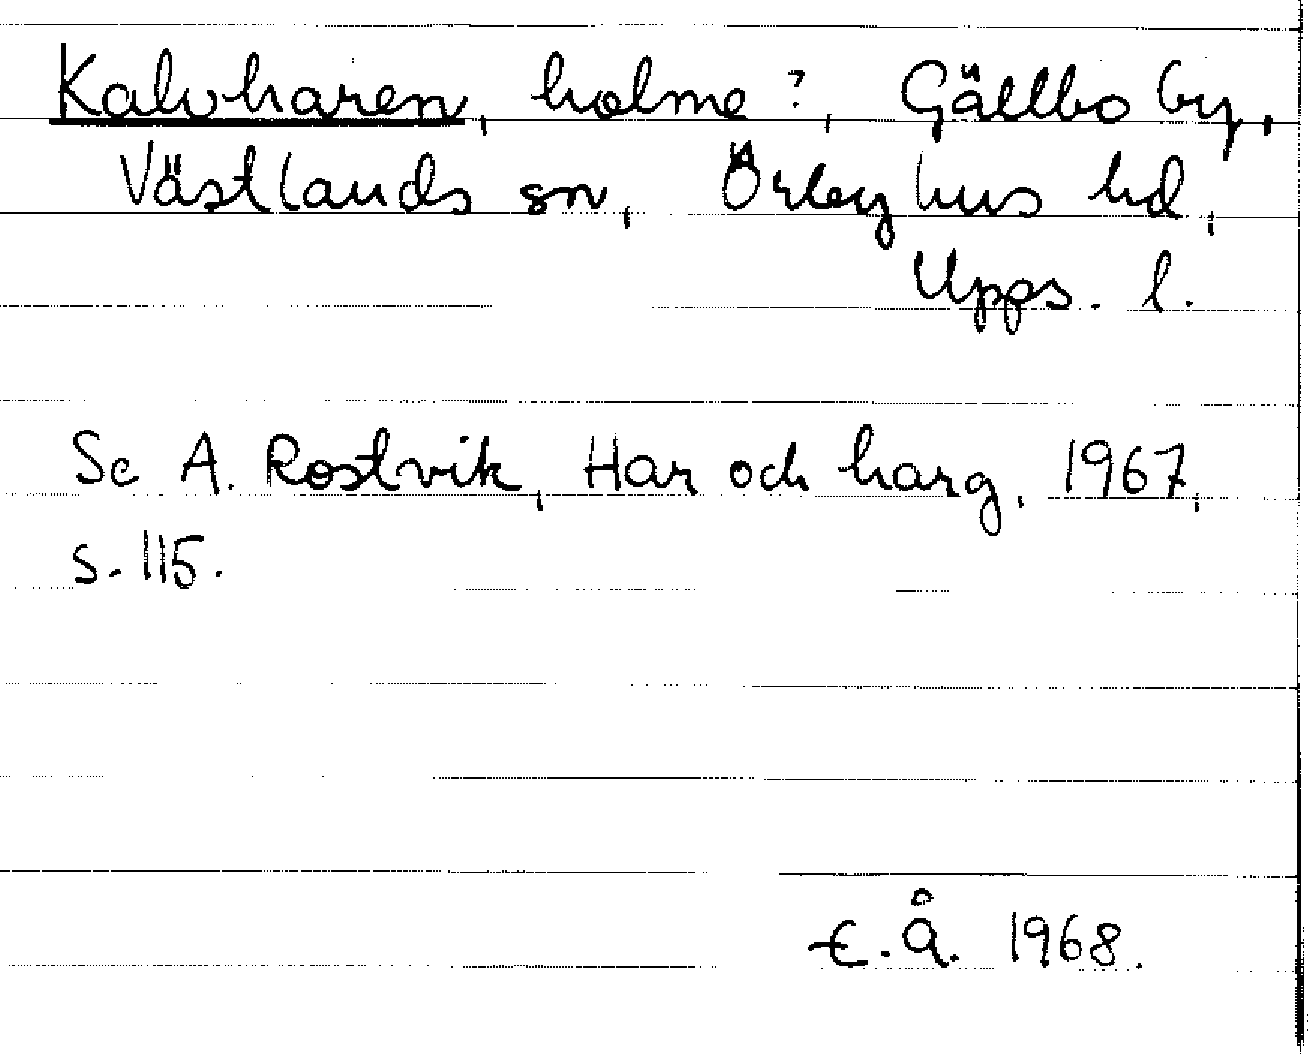 Kalvharen, holme?, Gällbo by,
Västlands sn, Örbyhus hd,
Upps. l.
Se A. Rostvik, Har och harg, 1967,
s. 115.
E. Å. 1968.